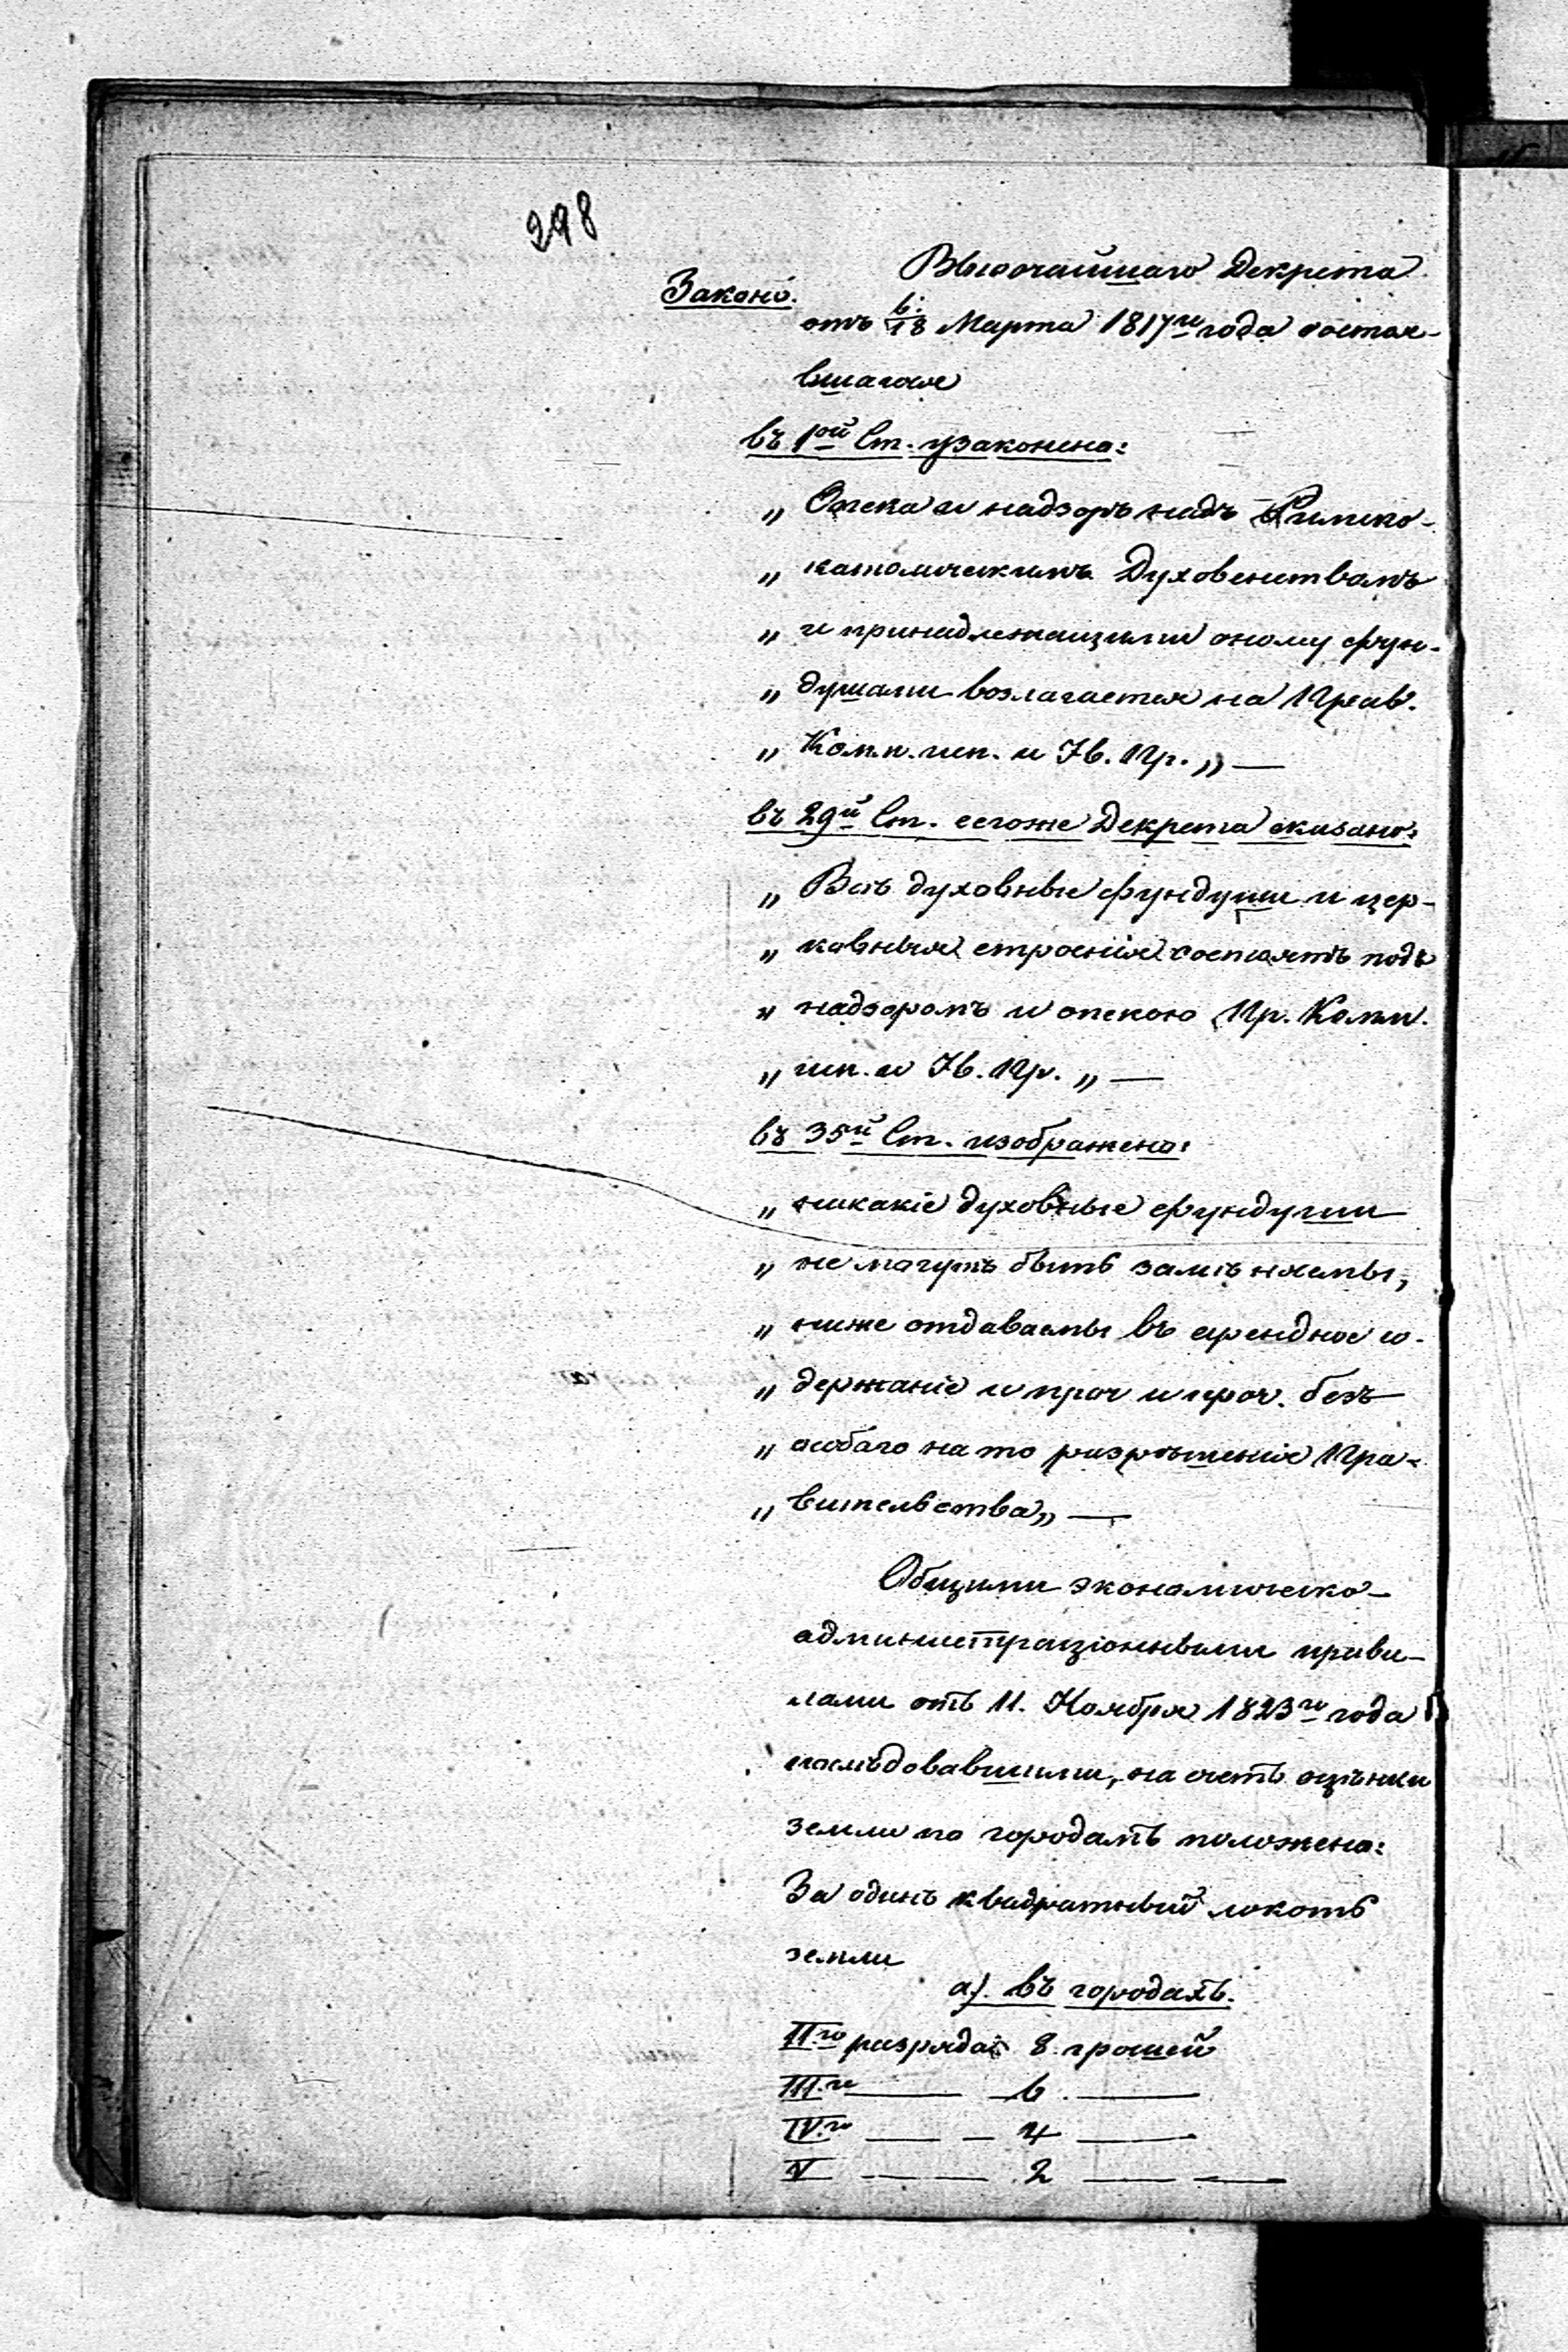 298
Высочайшаго Декрета
Законъ.
отъ 6/18 Марта 1817го года состоя-
вшагося
въ 1ой Ст. узаконено:
„ Опека и надзоръ надъ Римско-
„ католическимъ Духовенствомъ
„ и принадлежащими оному фун-
„ душами возлагается на Прав.
„ Комм. исп. и Нв. Пр. „ —
въ 29й Ст. сегоже Декрета сказано:
„ Всѣ духовные фундуши и цер-
„ ковныя строенія состоятъ подъ
„ надзоромъ и опекою Пр. Комм.
„ исп. и Нв. Пр. „ —
въ 35й Ст. изображено:
„ никакіе духовные фундуши
„ не могутъ быть замѣняемы,
„ ниже отдаваемы въ арендное со-
„ держаніе и проч и проч. безъ
„ особаго на то разрѣшенія Пра-
„ вительства „ —
Общими экономическо-
администраціонными прави-
лами отъ 11. Ноября 1823го года
послѣдовавшими, на счетъ оцѣнки
земли по городамъ положено:
За одинъ квадратный локоть
земли
а). въ городахъ.
II.го разряда 8 грошей
III.го — — 6 . —
IV.го — — 4 —
V — — 2 — —